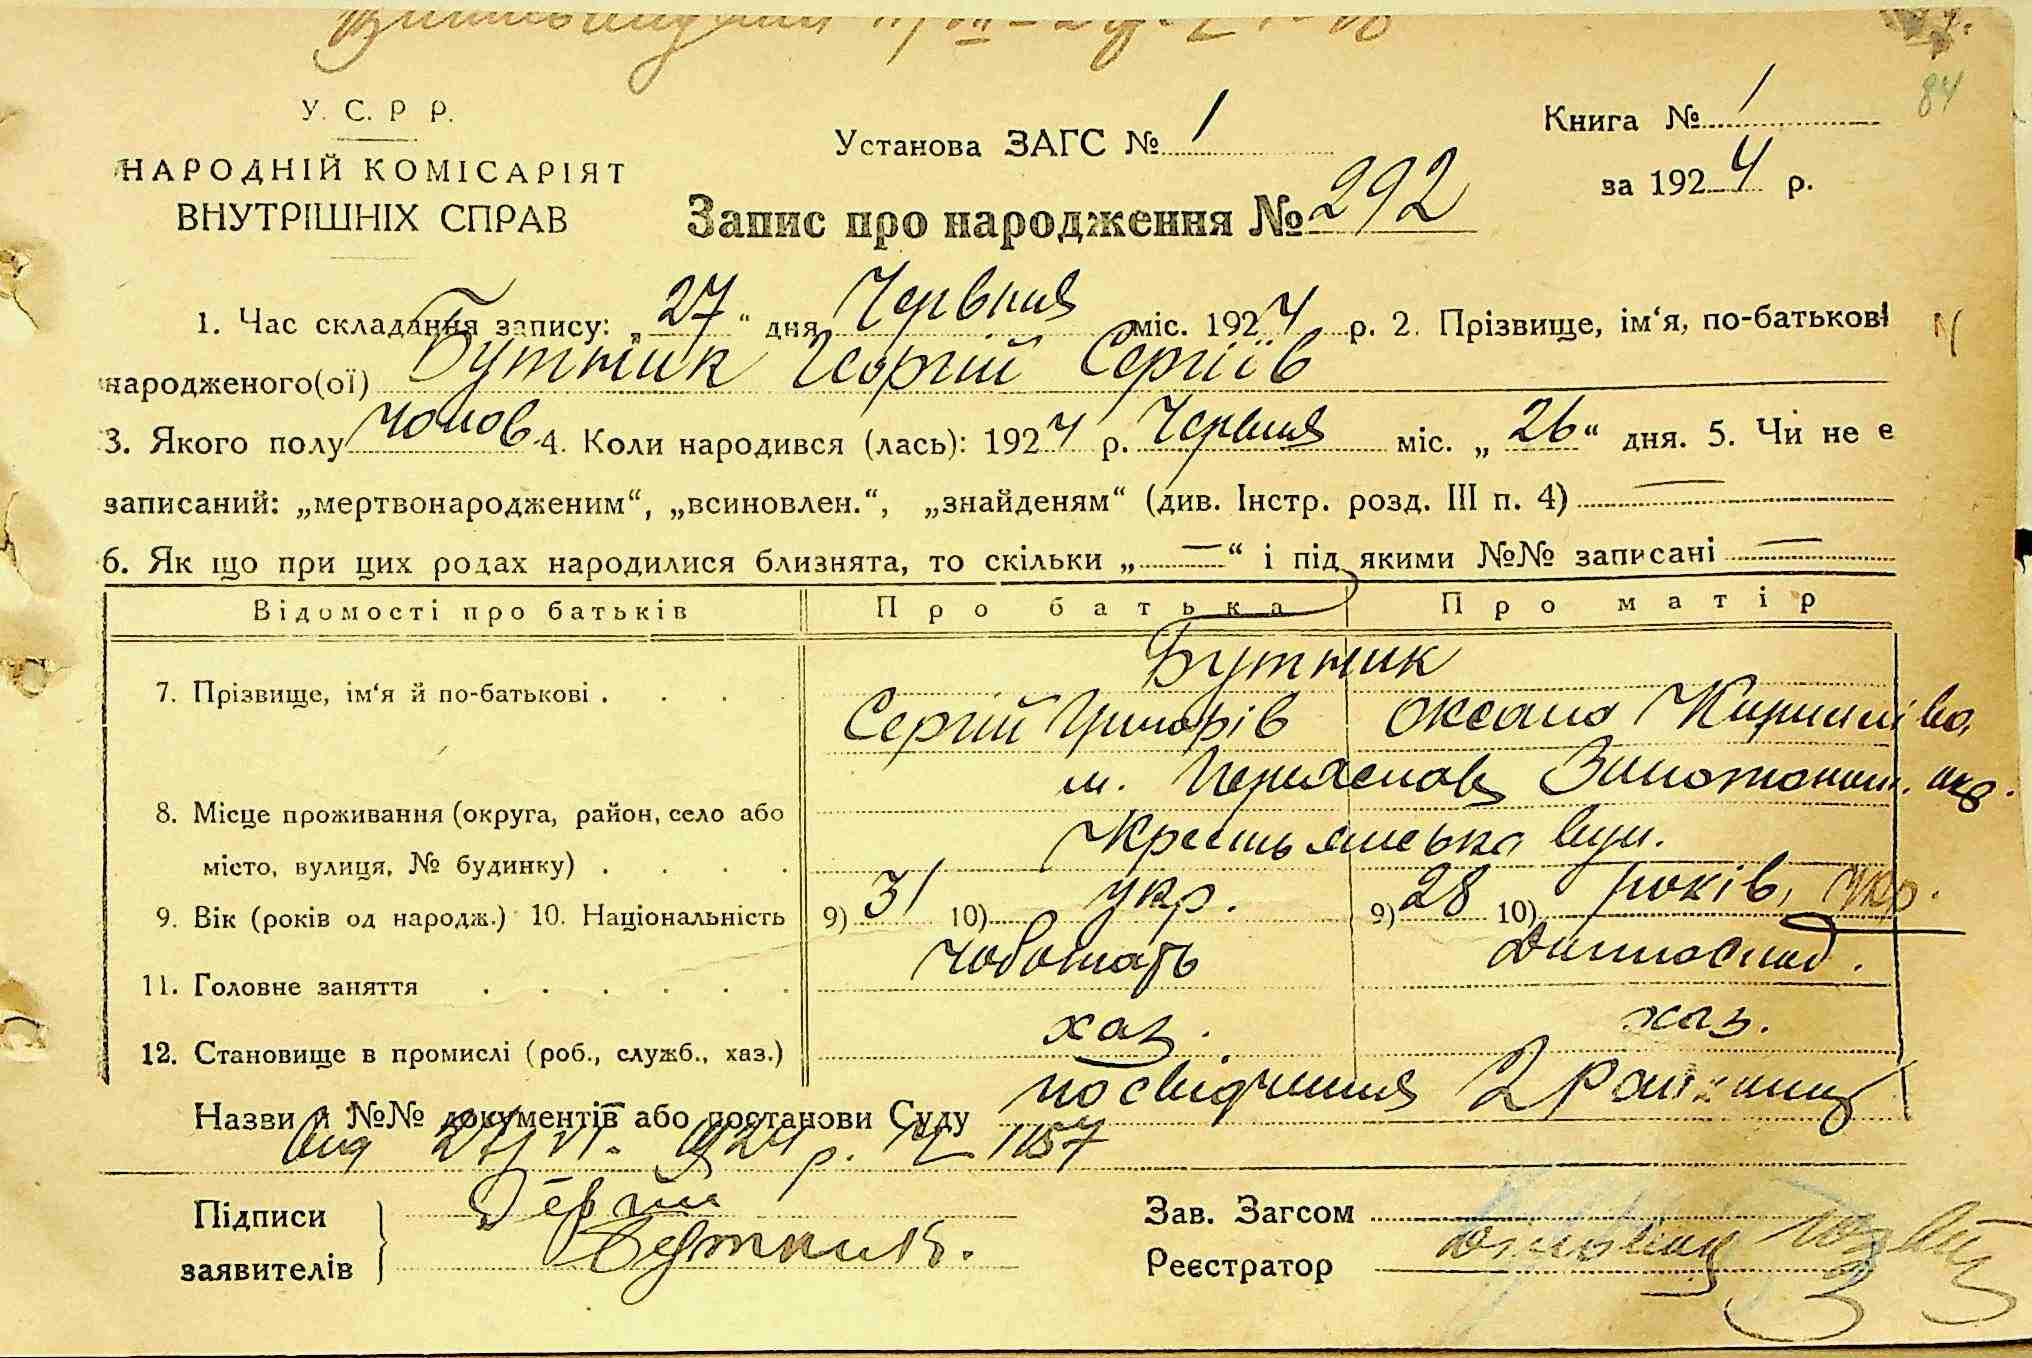 84
У. С. Р Р.
НАРОДНІЙ КОМІСАРІЯТ
ВНУТРІШНІХ СПРАВ
Установа ЗАГС № 1
Книга № 1
за 1924 р.
Запис про народження № 292
1. Час складання запису: „27“ дня Червня міс. 1924 р. 2. Прізвище, ім‘я, по-батькові
народженого(ої) Бутник Георгій Сергіїв
3. Якого полу чолов. 4. Коли народився (лась): 1924 р. Червня міс. „26“ дня. 5. Чи не є
записаний: „мертвонародженим“, „всиновлен.“, „знайденям“ (див. Інстр. розд. III п. 4) —
6. Як що при цих родах народилися близнята, то скільки „—“ і під якими №№ записані —
Відомості про батьків Про батька Про матір
7. Прізвище, ім‘я й по-батькові . . . . Бутник
Сергій Григорів Оксана Кирилівна
8. Місце проживання (округа, район, село або м. Переяслов Золотоніш. окр.
місто, вулиця, № будинку) . . . . Крестьянська вул.
9. Вік (років од народж.) 10. Національність 9) 31 10) укр. 9) 28 10) років, укр.
11. Головне заняття . . . . . . чоботарь домогосп.
12. Становище в промислі (роб., служб., хаз.) хаз. хаз.
Назви й №№ документів або постанови Суду посвідчення 2 
від 27/VI- 924 р. № 1157
Підписи заявителів Сергій
Бутник.
Зав. Загсом
Реєстратор